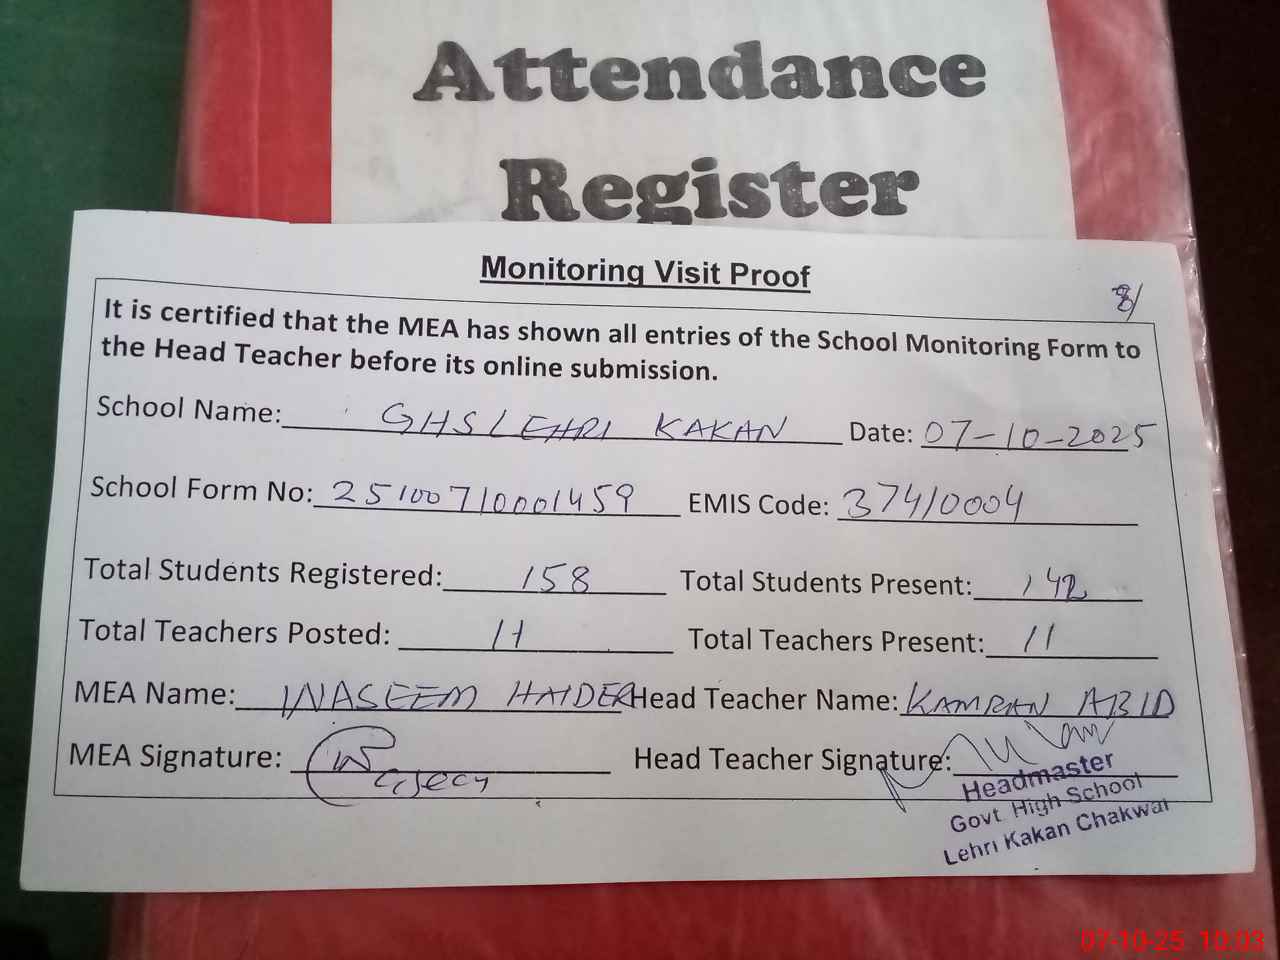 Attendance
Register
Monitoring Visit Proof
8/
It is certified that the MEA has shown all entries of the School Monitoring Form to
the Head Teacher before its online submission.
School Name: GHS LEHRI KAKAN Date: 07-10-2025
School Form No: 25100710001459 EMIS Code: 37410004
Total Students Registered: 158 Total Students Present: 142
Total Teachers Posted: 11 Total Teachers Present: 11
MEA Name: WASEEM HAIDER Head Teacher Name: KAMRAN ABID
MEA Signature: Head Teacher Signature:
Headmaster
Govt. High School
Lehri Kakan Chakwal
07-10-25 10:03